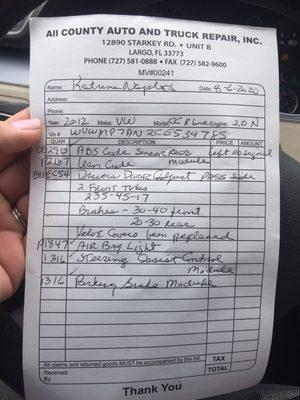 All COUNTY AUTO AND TRUCK REPAIR, INC.
12890 STARKEY RD. • UNIT B
LARGO, FL 33773
PHONE (727) 581-0888 • FAX (727) 582-9600
MV#00241
Name: Katrina Date: 4-6-2020
Address:
Phone:
Year: 2012 Make: VW Model: CC R Line Engine: 2.0 N
Vin #
QUAN DESCRIPTION PRICE AMOUNT
00290 ABS Code Sensor Rear left No Signal
P2187 Lean Code Module
Drivers Door Adjust Pass Side
2 Front Tires
235-45-17
Brakes - 30-40 front
20-30 rear
Valve Covers been replaced
P1847 AIR Bag Light
1316 Steering Assist Control
Module
1316 Parking Brake Module
All claims and returned goods MUST be accompanied by this bill. TAX
Received
By TOTAL
Thank You